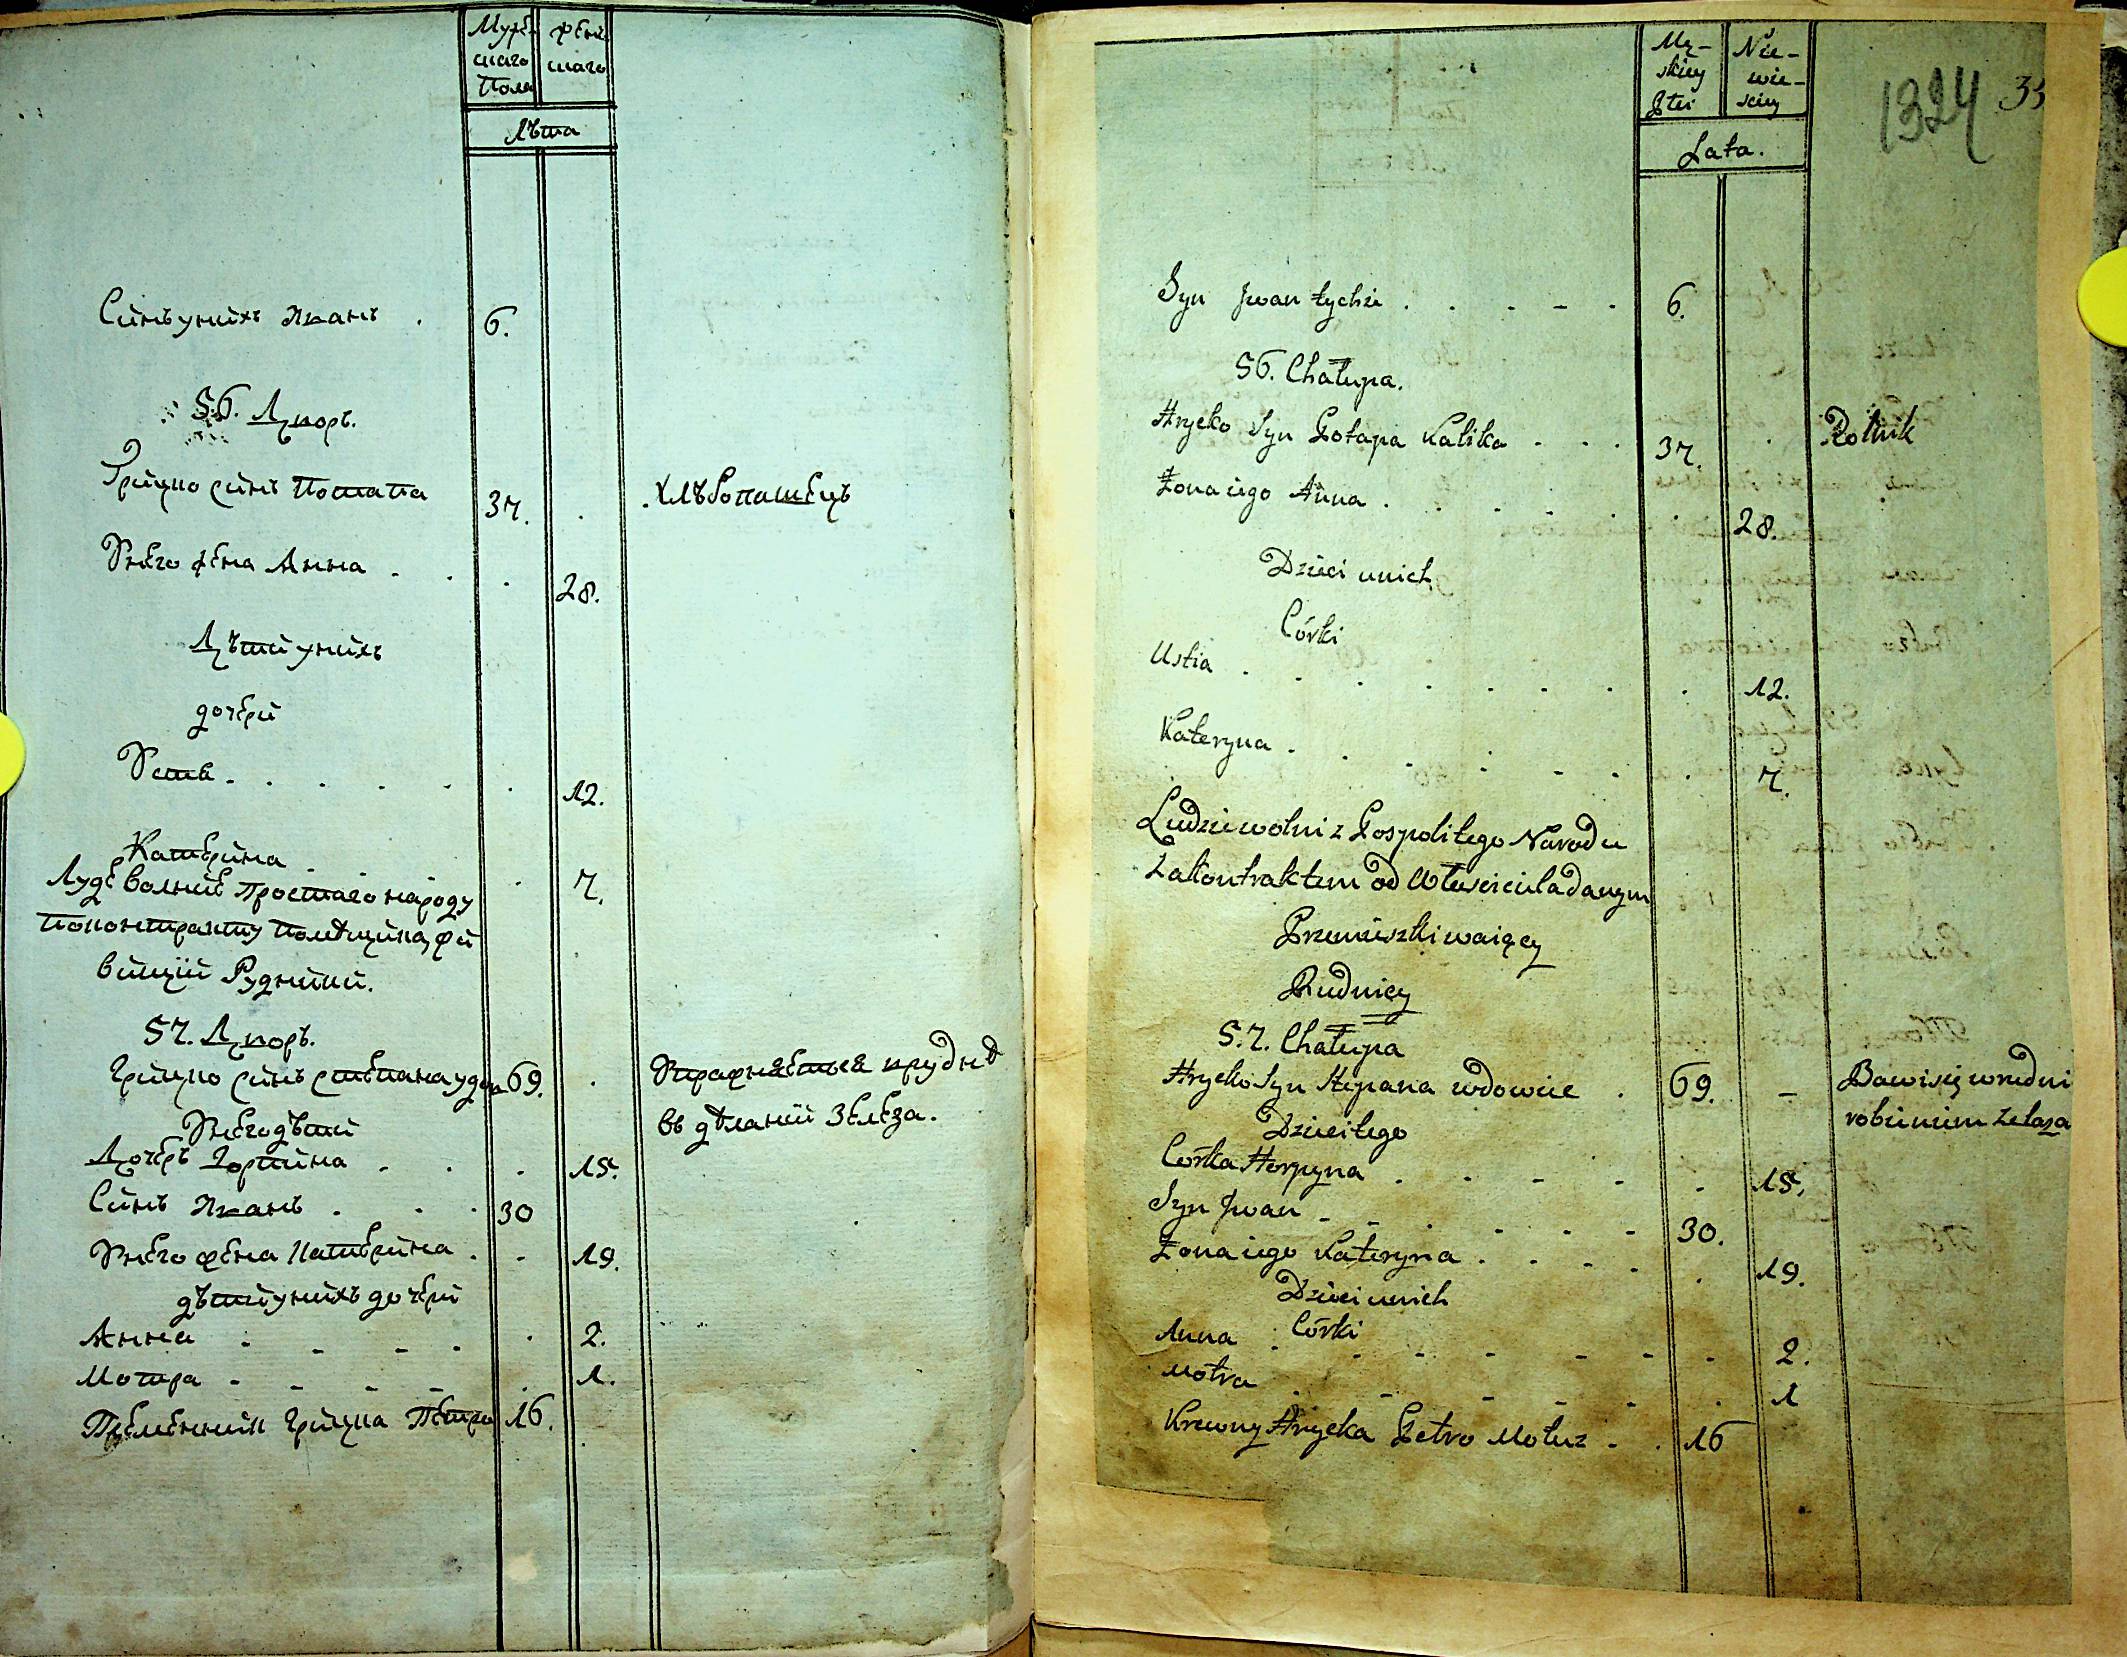 Мужес
каго
Пола
жен
скаго
Лѣта
Синъ унихъ Иванъ . 6.
56. Дворъ.
Грицко синъ Потапа 37. . Хлѣбопашецъ
Унего жена Анна . . . 28.
Дѣти унихъ
дочери
Устя . . . . . . 12.
Катерина . . . . 7.
Люде волние простаго народу
по контракту помѣщика, жи
вищии Рудники.
57. Дворъ.
Грицко синъ степана 69. . Упражняется врудне
Унего дѣти въ дѣлании Зелеза.
Дочерь Горпина . . . 15.
Синъ Иванъ . . . 30
Унего жена Катерина . . 19.
дѣти унихъ дочери
Анна . . . . . 2.
Мотра . . . . . 1.
Племенник Грицка Петро 16.
Mę-
skiey
Płei
Nie-
wie-
sciey
1324 35
Lata.
Syn Jwan tychże . . . . . 6.
56. Chałupa.
Hrycko Syn Potapa Kalika . . . 37. . Rolnik
Żona iego Anna . . . . . . 28.
Dzieci unich
Córki
Ustia . . . . . . . . 12.
Kateryna . . . . . . . 7.
Ludzie wolni z Pospolitego Narodu
za Kontraktem od Właściciela danym
Przemieszkiwaiący
Rudnicy
57. Chałupa
Hrycko Syn Stepana wdowiec . 69. - Bawi się wrudni
Dzieci tego robieniem żelaza
Córka Horpyna . . . . . . 15.
Syn Jwan . . . . . . 30.
Żona iego Kateryna . . . . . 19.
Dzieci unich
Córki
Anna . . . . . . . 2.
Motra . . . . . . . 1
Krewny Hrycka Petro Motuz . . 16